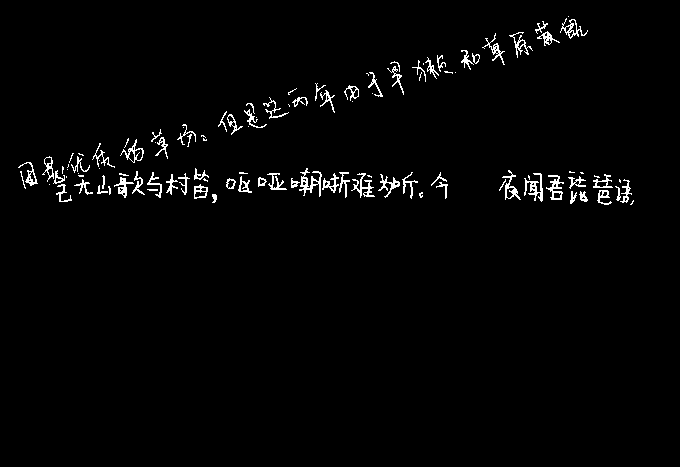 因是优质的草场。但是这两年由于旱獭和草原黄鼠
岂无山歌与村笛,呕哑嘲哳难为听。今 夜闻吾琵琶语